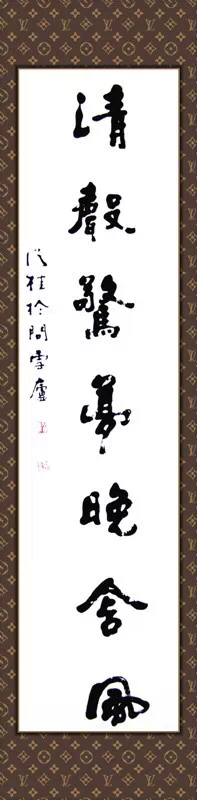 清聲驚夢晚含風
桂於問雪廬